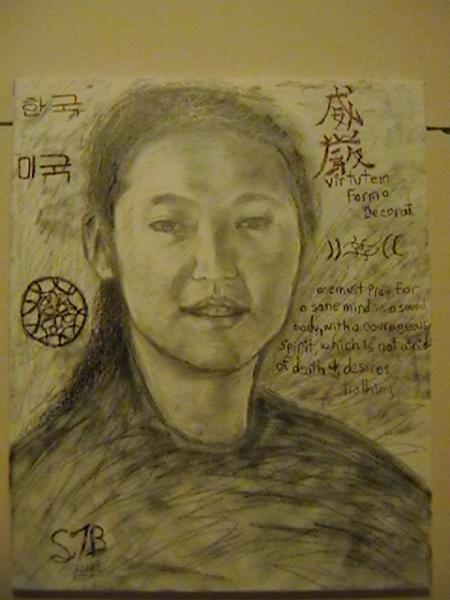 한국
미국
威
厳
Virtutem
Forma
Decorat
one must Pray For
a sane mind in a sound
body, with a courageous
Spirit, which is not afraid
of death & desires
nothing
STB